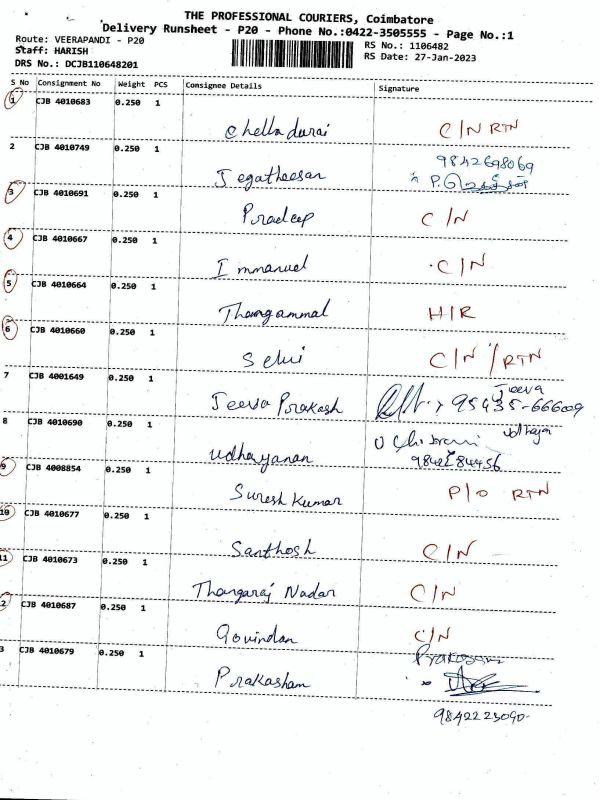 THE PROFESSIONAL COURIERS, Coimbatore
Delivery Runsheet - P20 - Phone No.:0422-3505555 - Page No.:1
Route: VEERAPANDI - P20
RS No.: 1106482
Staff: HARISH
RS Date: 27-Jan-2023
DRS No.: DCJB110648201
S No Consignment No Weight PCS Consignee Details Signature
1 CJB 4010683 0.250 1
Chelladurai C/N RTN
2 CJB 4010749 0.250 1
9842698069
Jegatheesan
3 CJB 4010691 0.250 1
Pradeep C/N
4 CJB 4010667 0.250 1
Immanuel C/N
5 CJB 4010664 0.250 1
Thangammal H/R
6 CJB 4010660 0.250 1
Selvi C/N /RTN
7 CJB 4001649 0.250 1
Jeeva
Jeeva Prakash 95435-666009
8 CJB 4010690 0.250 1
Udhayanan
9 CJB 4008854 0.250 1
Suresh Kumar P/O RTN
10 CJB 4010677 0.250 1
Santhosh C/N
11 CJB 4010673 0.250 1
Thangaraj Nadar C/N
2 CJB 4010687 0.250 1
Govindan C/N
3 CJB 4010679 0.250 1
Prakasam
Prakasham
9842223090-